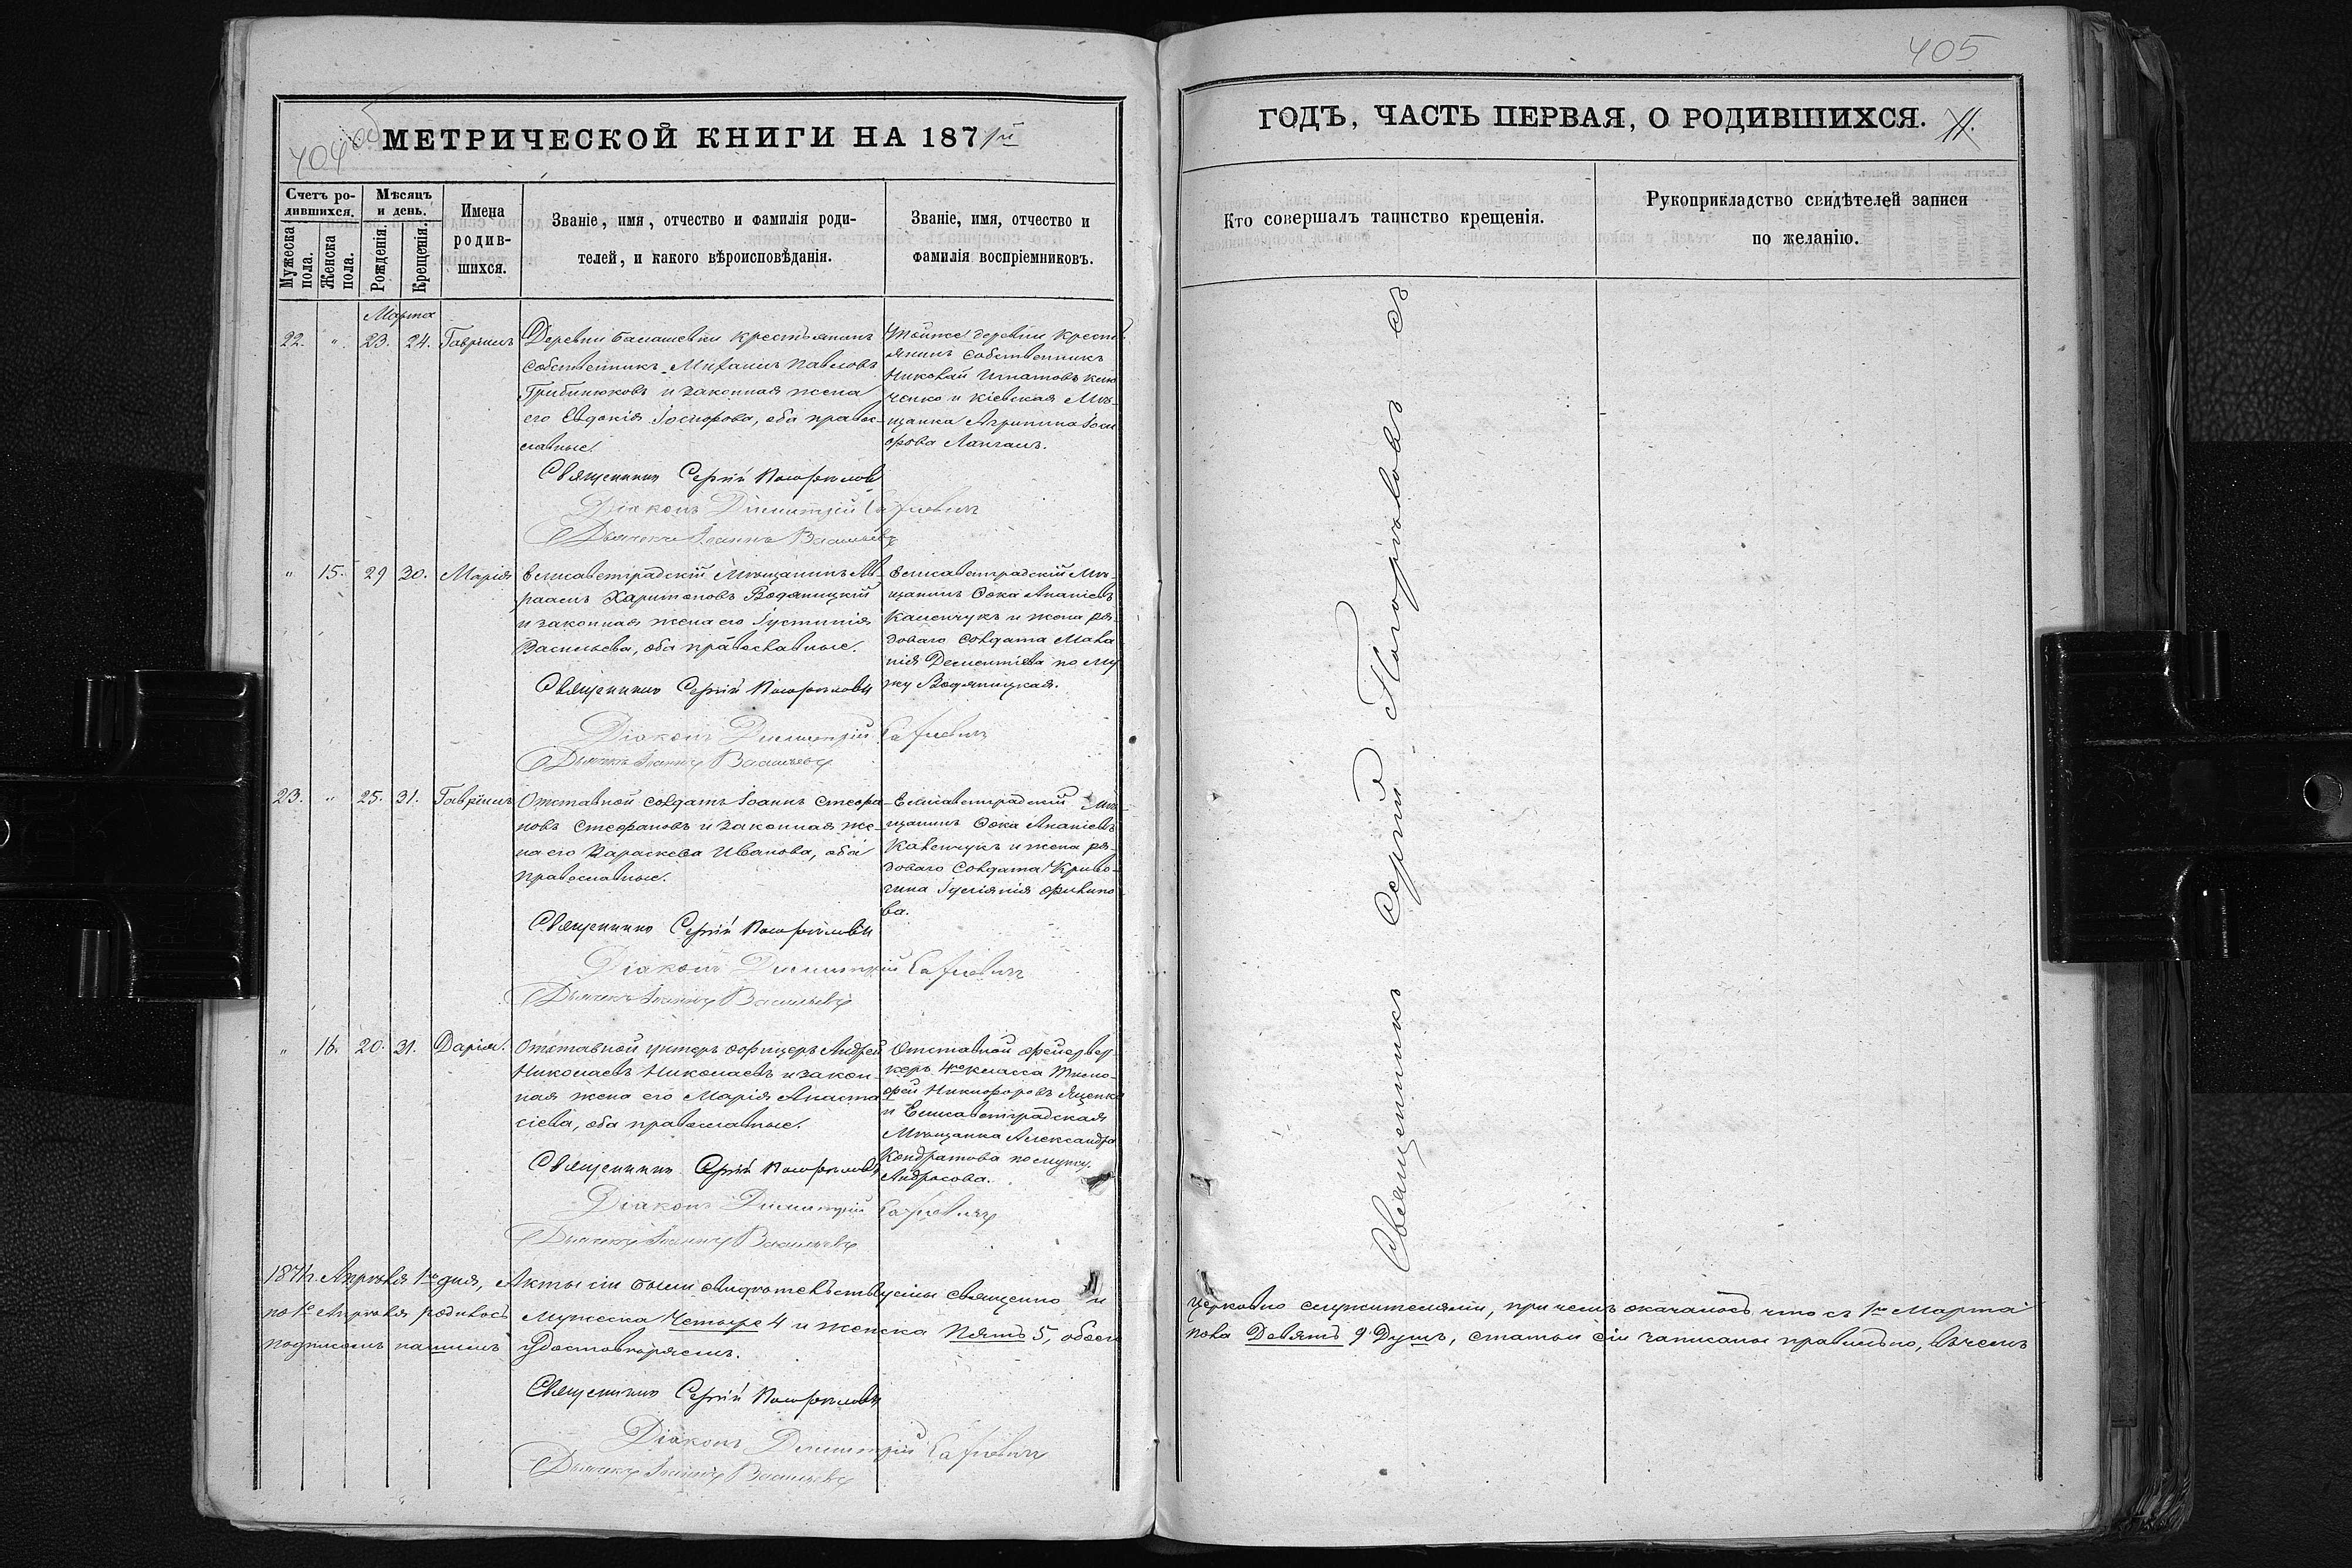 405
404 об
МЕТРИЧЕСКОЙ КНИГИ НА 1871й
Счетъ родившихся.
Мѣсяцъ и день.
Мужеска пола.
Женска пола.
Рожденія.
Крещенія.
Имена родив-
шихся.
Званіе, имя, отчество и фамилія роди-
телей, и какого вѣроисповѣданія.
Званіе, имя, отчество и
фамилія воспріемниковъ.
Марта
22. " 23. 24. Гавріилъ
Деревни Балашевки крестьянинъ
собственникъ Михаилъ Павловъ
Грибинюковъ и законная жена
его Евдокія Іосифова, оба правос-
лавные.
Тойже деревни крест
янинъ собственникъ
Николай Игнатовъ
и Кіевская Мѣ-
щанка Агрипина Іоси
фова
Священникъ Сергій Погорѣловъ
Діаконъ Димитрій
Дьячекъ Іоаннъ Васильевъ
" 15. 29 30. Марія
Елисаветградскій Мѣщанинъ Ав-
раамъ Харитоновъ Водяницкій
и законная жена его Іустинія
Васильева, оба православные.
Елисаветградскій Мѣ-
щанинъ Ѳока Ананіевъ
и жена ря-
доваго солдата Мала
нія Дементіева по му
жу Водяницкая.
Священникъ Сергій Погорѣловъ
Діаконъ Димитрій
Дьячекъ Іоаннъ Васильевъ
23. " 25. 31. Гавріилъ
Отставной солдатъ Іоаннъ Стефа-
новъ Стефановъ и законная же-
на его Параскева Иванова, оба
православные.
Елисаветградскій Мѣ
щанинъ Ѳока Ананіевъ
и жена ря-
доваго солдата
Іуліянія Филипо
ва.
Священникъ Сергій Погорѣловъ
Діаконъ Димитрій
Дьячекъ Іоаннъ Васильевъ
" 16. 20. 31. Дарія.
Отставной унтеръ офицеръ Андрей
Николаевъ Николаевъ и закон-
ная жена его Марія Анаста
сіева, оба православные.
Отставной фейервер
керъ 4го класса Тимо-
фей Никифоровъ Яценко
и Елисаветградская
Мѣщанка Александра
Кондратова по мужу
Андросова.
Священникъ Сергій Погорѣловъ
Діаконъ Димитрій
Дьячекъ Іоаннъ Васильевъ
1871г. Апрѣля 1го дня, Акты сіи были свидѣтельствуемы священно и
по 1е Апрѣля родилось Мужеска Четыре 4 и женска Пять 5, обоего
подписомъ нашимъ удостовѣряемъ.
Священникъ Сергій Погорѣловъ
Діаконъ Димитрій
Дьячекъ Іоаннъ Васильевъ
ГОДЪ, ЧАСТЬ ПЕРВАЯ, О РОДИВШИХСЯ.
Кто совершалъ таинство крещенія.
Рукоприкладство свидѣтелей записи
по желанію.
Священникъ Сергій Погорѣловъ съ
церковно служителями, при чемъ оказалось что съ 1го Марта
пола Девять 9 Душъ, статьи сіи записаны правильно, въ чемъ